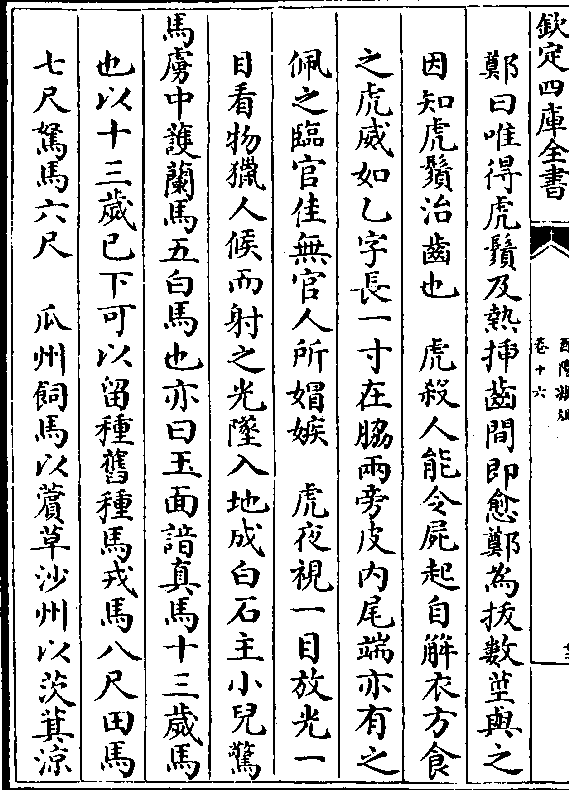 欽定四庫全書
卷十六
鄭曰唯得虎鬚及熱揷齒間即愈鄭為拔數莖與之
因知虎鬚治齒也　虎殺人能令屍起自解衣方食
之虎威如乙字長一寸在脇兩旁皮内尾端亦有之
佩之臨官佳無官人所媢嫉　虎夜視一目放光一
目看物獵人候而射之光墜入地成白石主小兒驚
馬虜中䕶蘭馬五白馬也亦曰玉面諳真馬十三歲馬
也以十三歲已下可以留種舊種馬戎馬八尺田馬
七尺駑馬六尺　瓜州飼馬以薲草沙州以茨萁涼